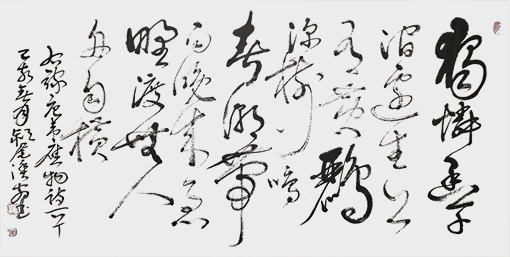 獨憐幽草
澗邊生上
有黄鸝
深樹鳴
春潮帶
雨晚來急
野渡無人
舟自橫
右録唐韦應物詩一首
己亥春月